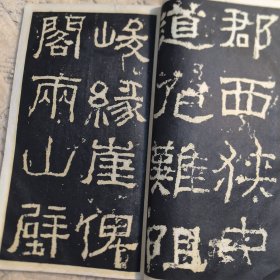 郡西狭中
道危難阻
峻緣崖俾
閣兩山壁